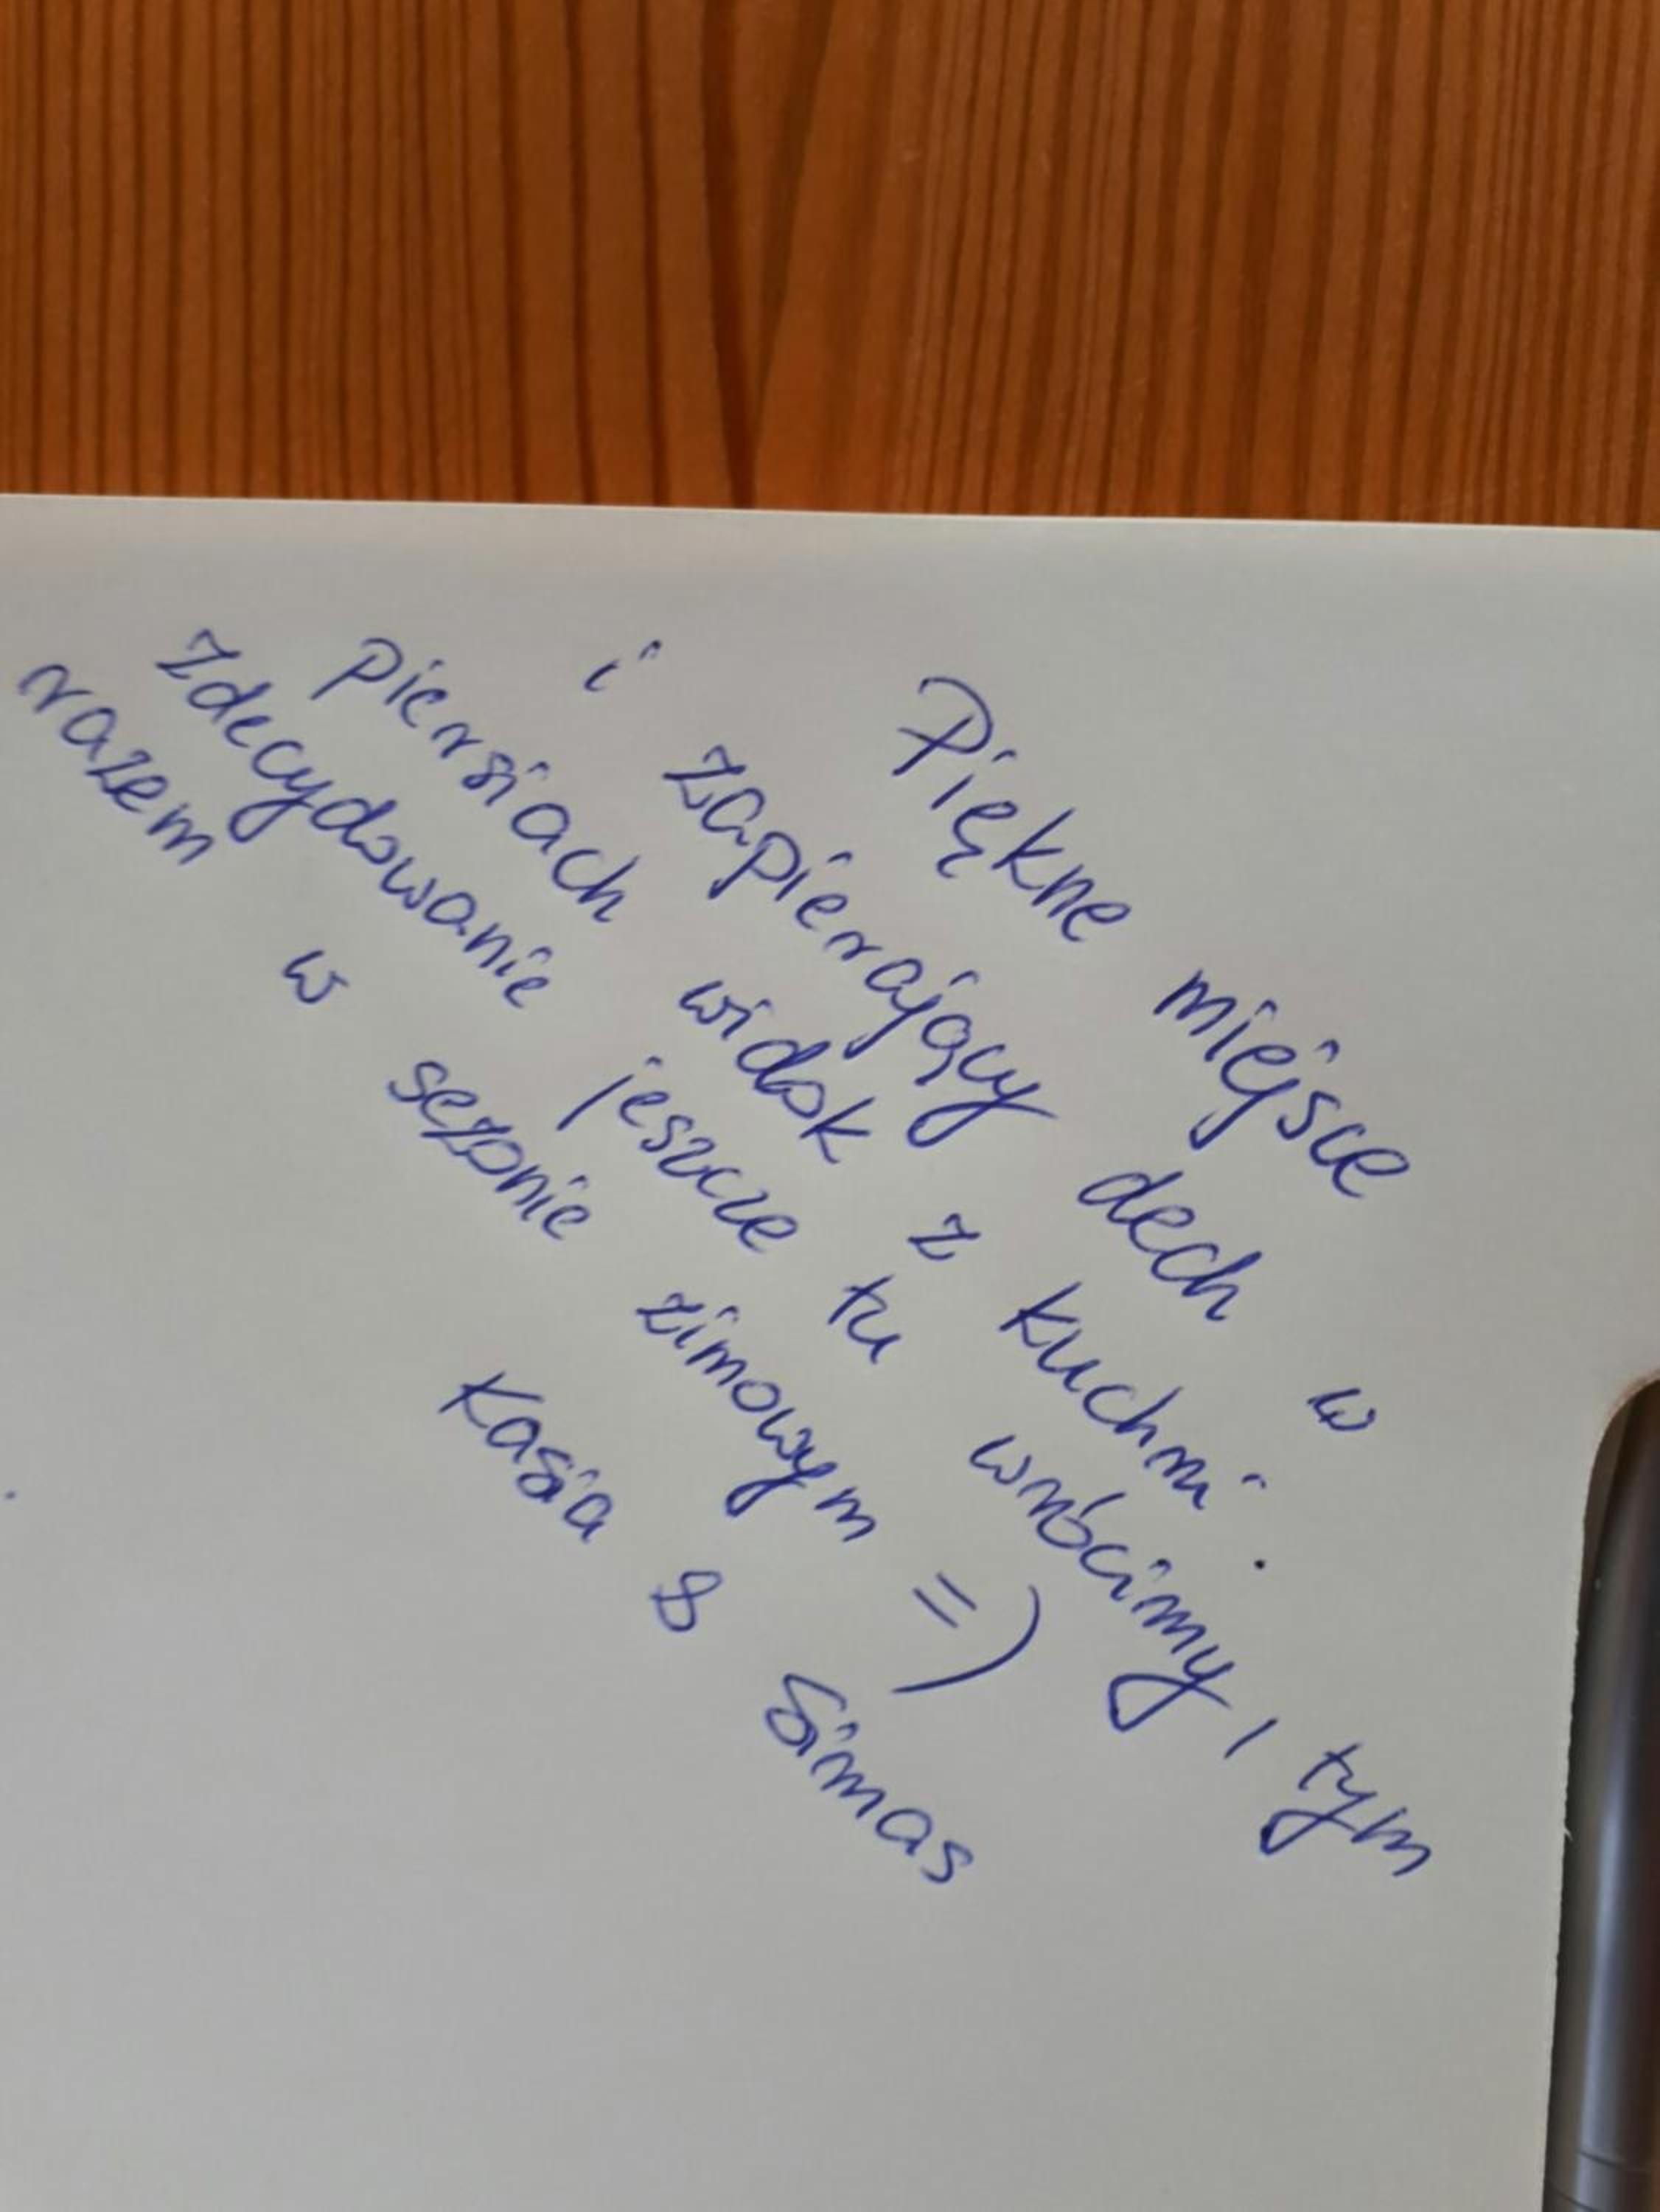 Piękne miejsce
i zapierający dech w
piersiach widok z kuchni.
Zdecydowanie jeszcze tu wrócimy, tym
razem w sezonie zimowym =)
Kasia & Simas